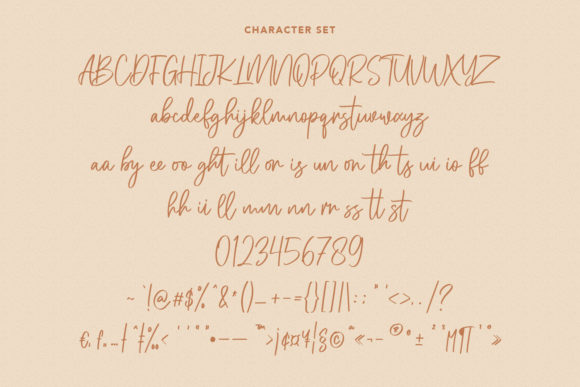 CHARACTER SET
ABCDEFGHIJKLMNOPQRSTUVWXYZ
abcdefghijklmnopqrstuvwxyz
aa by ee oo ght ill or is un on th ts ui io ff
hh ii ll mm nn rr ss tt st
0123456789
~ `!@#$%^&*()_+-={}[]|\:;"'<>,./?